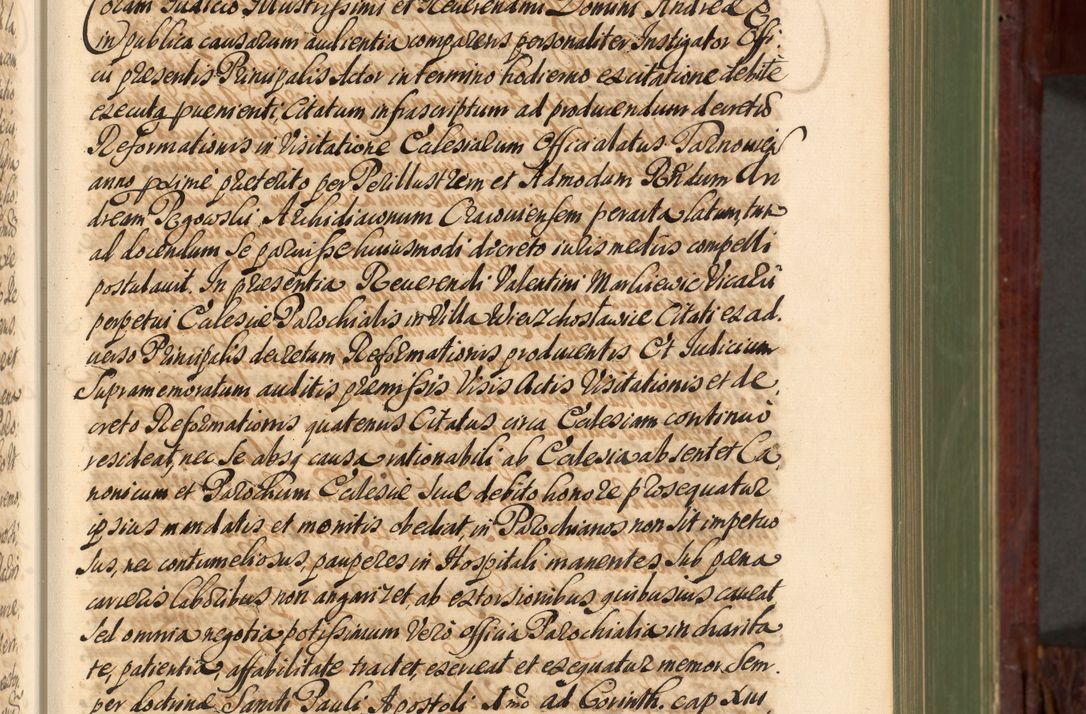 Coram Judicio Illustrissimi et Reverendimi Domini Andreæ
in publica causarum audientia comparens personaliter Instigator Offi-
cii præsentis Principalis Actor in termino hodierno ex citatione debite
executa pvenienti, Citatum infrascriptum ad producendum decretũ
Reformationis in Visitatione Ecclesiarum Officialatus Tarnovien
anno proximè præterito per Perillustrem et Admodum Rñdum An
dream Pęgowski Archidiaconum Cracoviensem peracta latum, tum
ad docendum se paruisse huiusmodi decreto iuris medijs compelli
postulavit. In præsentia Reverendi Valentini Markiewic Vicarii
perpetui Ecclesiæ Parochialis in Villa Wierzchosławice Citati ex ad-
verso Principalis decretum Reformationis producentis Et Judicium
Supramemoratum auditis præmissis Visis Actis Visitationis et de
creto Reformationis quatenus Citatus circa Ecclesiam continuò
resideat, nec se absq causa rationabili ab Ecclesia absentet Ca
nonicum et Parochum Ecclesiæ suæ debito honore prosequatur
ipsius mandatis et monitis obediat, in Parochianos non sit impetuo
sus, nec contumeliosus, pauperes in Hospitali manentes, sub pæna
carceris laboribus non angarizet, ab extorsionibus quibusvis caveat
sed omnia negotia potissimum Verò officia Parochialia in charita
te, patientia, affabilitate tractet, exerceat et exequatur memor sem-
per doctrinæ Sancti Pauli Apostoli 1mo ad Corinth. cap XIII